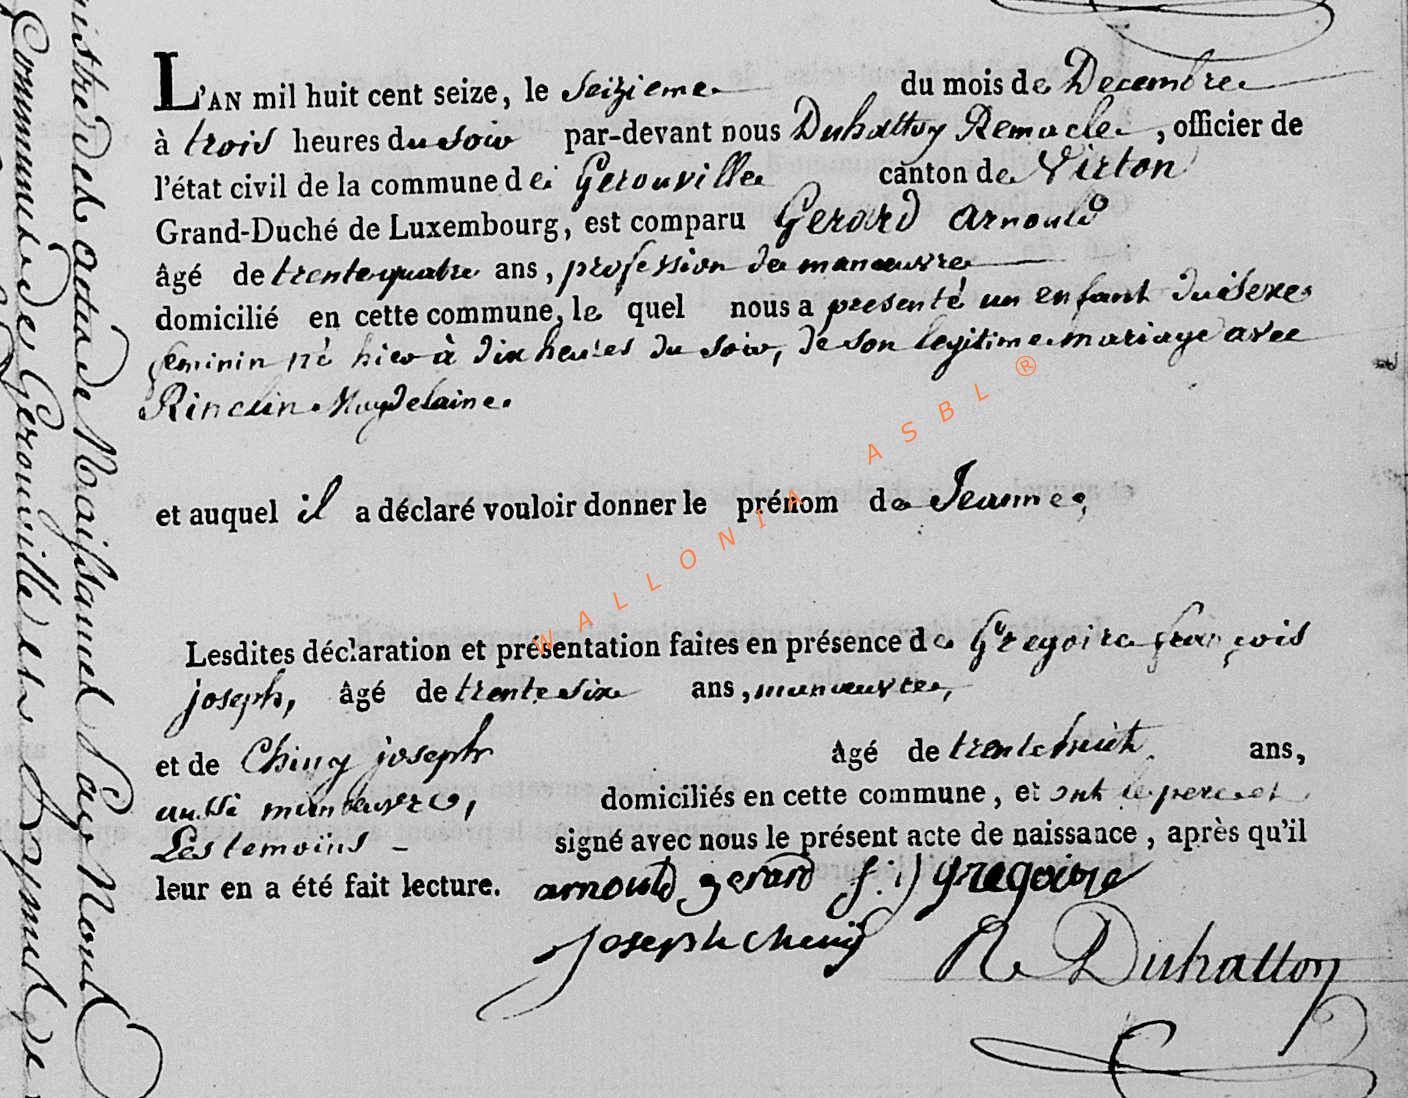 L'AN mil huit cent seize, le Seizieme du mois de Decembre
à trois heures du soir par-devant nous Duhattoy Remacle, officier de
l'état civil de la commune de Gerouville canton de Virton
Grand-Duché de Luxembourg, est comparu Gerard arnould
âgé de trente quatre ans, profession de manœuvre
domicilié en cette commune, le quel nous a presenté un enfant du sexe
feminin né hier à dix heures du soir, de son legitime mariage avec
Magdelaine.
et auquel il a déclaré vouloir donner le prénom de Jeanne,
Lesdites déclaration et présentation faites en présence de Gregoire françois
joseph, âgé de trente six ans, manœuvre,
et de Chiny joseph âgé de trente huit ans,
aussi manœuvre, domiciliés en cette commune, et ont le pere et
Les temoins - signé avec nous le présent acte de naissance, après qu'il
leur en a été fait lecture. arnould gerard f. j gregoire
Joseph
R Duhattoy
WALLONIA ASBL ®
des actes de Naissance Pour
Commune de Gerouville